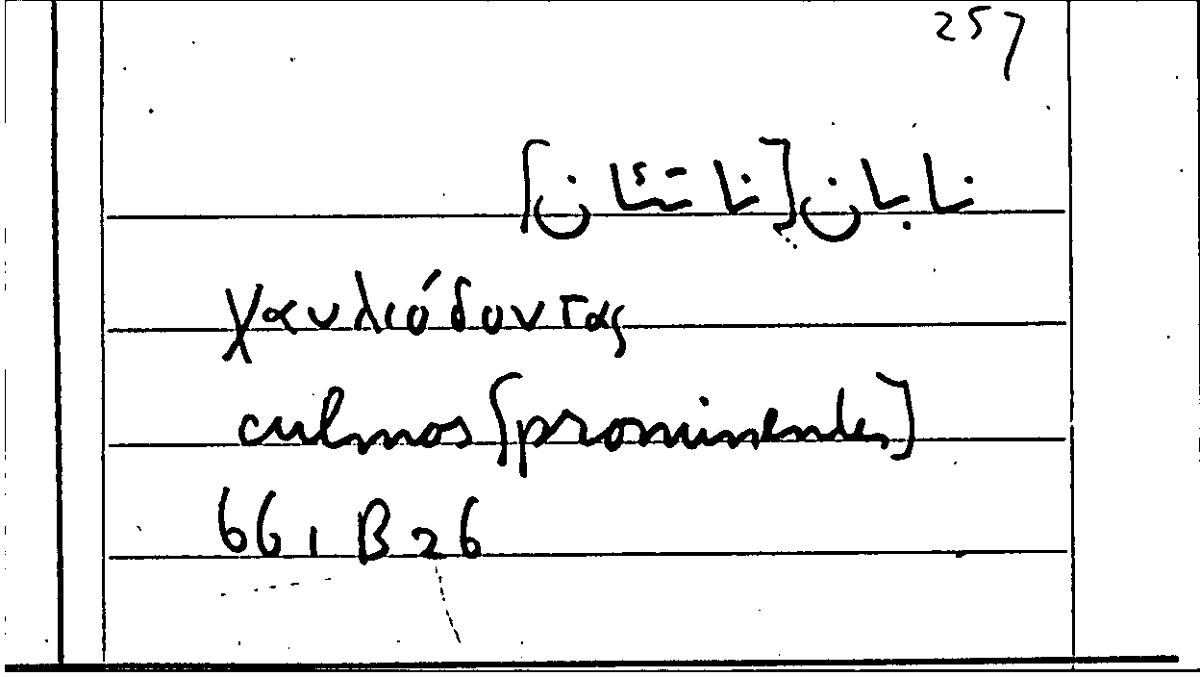 257
نابان [ناتئان]
χαυλιόδοντας
culmos [prominentes]
661 B 26